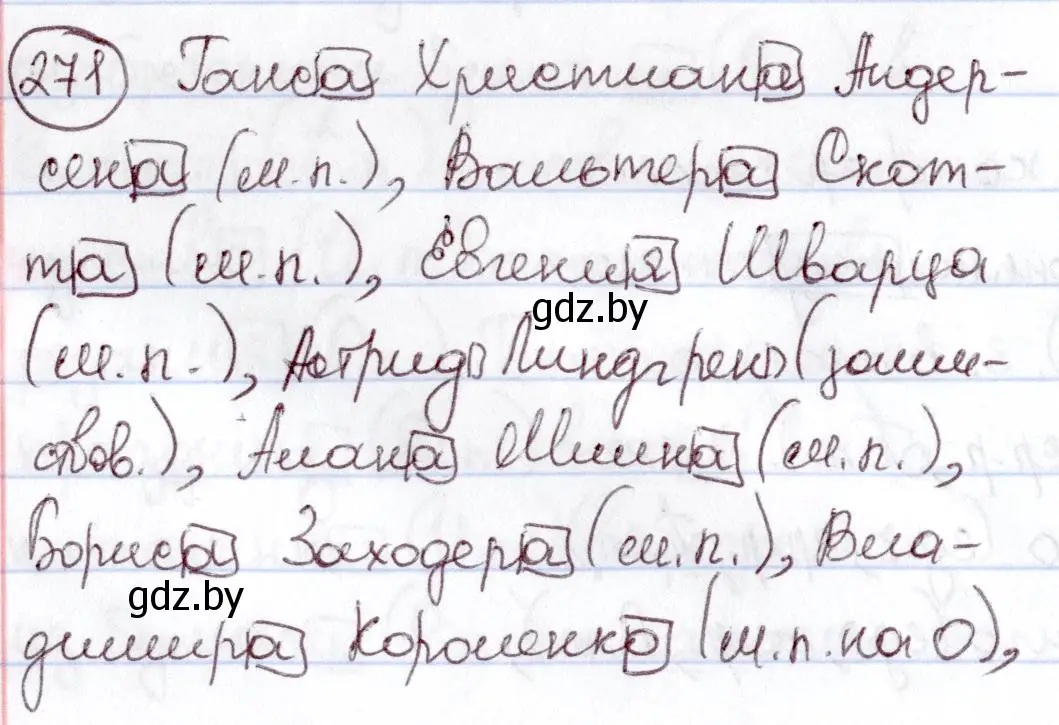 271 Ганса Христиана Андер-
сена (м.п.), Вальтера Скот-
та (м.п.), Евгения Шварца
gdz.by
(м.п.), Астрид Линдгрен (заим-
ствов.), Алана Милна (м.п.),
Бориса Заходера (м.п.), Вла-
gdz.by
димира Короленко (м.п. на О),